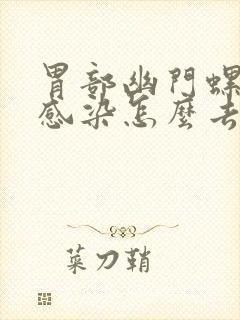 胃部幽門螺
感染怎麼去
菜刀鞘